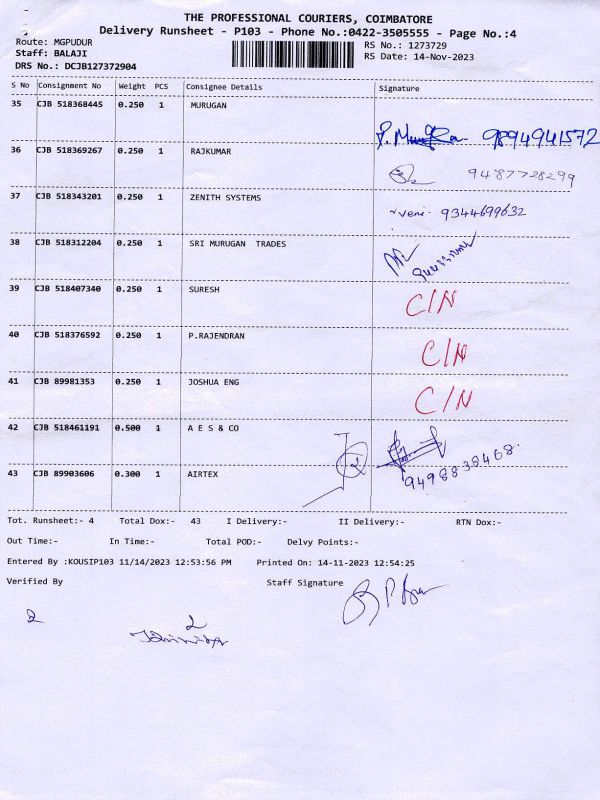 THE PROFESSIONAL COURIERS, COIMBATORE
Delivery Runsheet - P103 - Phone No.:0422-3505555 - Page No.:4
Route: MGPUDUR
RS No.: 1273729
Staff: BALAJI
RS Date: 14-Nov-2023
DRS No.: DCJB127372904
S No Consignment No Weight PCS Consignee Details Signature
35 CJB 518368445 0.250 1 MURUGAN
9894941572
36 CJB 518369267 0.250 1 RAJKUMAR
9487728299
37 CJB 518343201 0.250 1 ZENITH SYSTEMS
9344699632
38 CJB 518312204 0.250 1 SRI MURUGAN TRADES
39 CJB 518407340 0.250 1 SURESH C/N
40 CJB 518376592 0.250 1 P.RAJENDRAN C/N
41 CJB 89981353 0.250 1 JOSHUA ENG C/N
42 CJB 518461191 0.500 1 A E S & CO
43 CJB 89903606 0.300 1 AIRTEX
9498838468
Tot. Runsheet:- 4 Total Dox:- 43 I Delivery:- II Delivery:- RTN Dox:-
Out Time:- In Time:- Total POD:- Delvy Points:-
Entered By :KOUSIP103 11/14/2023 12:53:56 PM Printed On: 14-11-2023 12:54:25
Verified By Staff Signature